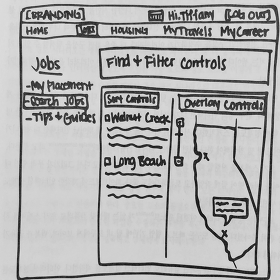 [BRANDING] Hi, Tiffany [Log Out]
HOME Jobs HOUSING MyTravels MyCareer
Jobs
Find + Filter Controls
-My Placement
-Search Jobs
-Tips + Guides
Sort Controls
Overlay Controls
Walnut Creek
Long Beach